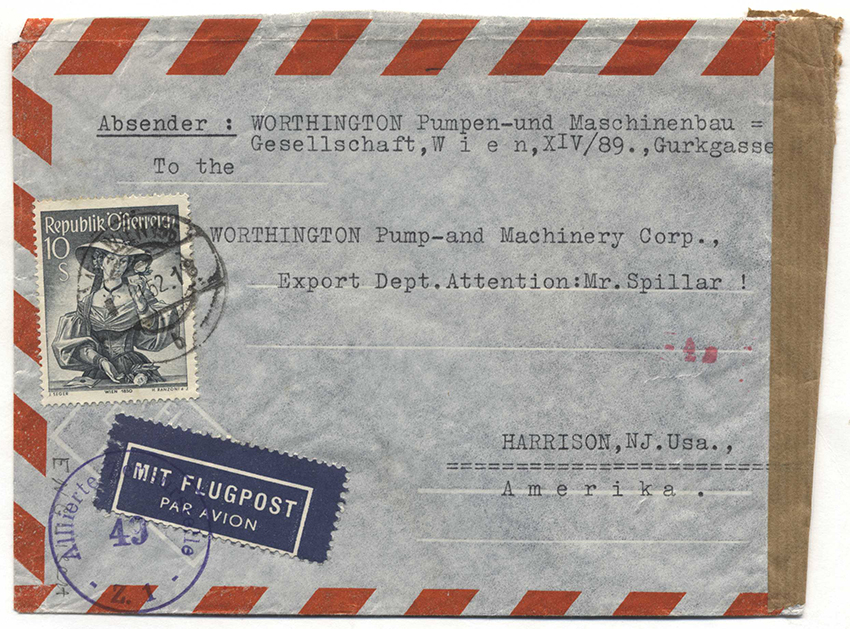 Absender : WORTHINGTON Pumpen-und Maschinenbau =
Gesellschaft,W i e n,XIV/89.,Gurkgasse
To the
WORTHINGTON Pump-and Machinery Corp.,
Export Dept.Attention:Mr.Spillar !
HARRISON,NJ.Usa.,
==========================
A m e r i k a .
Republik Österreich
10
S
WIEN 1850
MIT FLUGPOST
PAR AVION
Alliierte
49
Z. 1